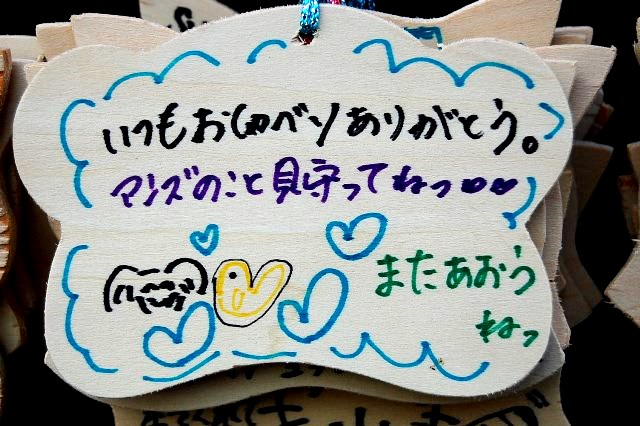 いつもおしゃべりありがとう。
マンズのこと見守ってねっ
またあおう
ねっ